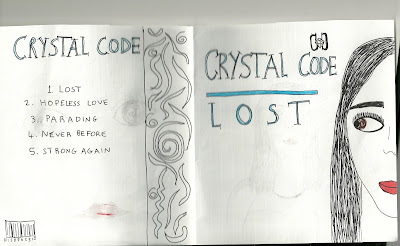 CRYSTAL CODE
1. LOST
2. HOPELESS LOVE
3. PARADING
4. NEVER BEFORE
5. STRONG AGAIN
CRYSTAL CODE
LOST